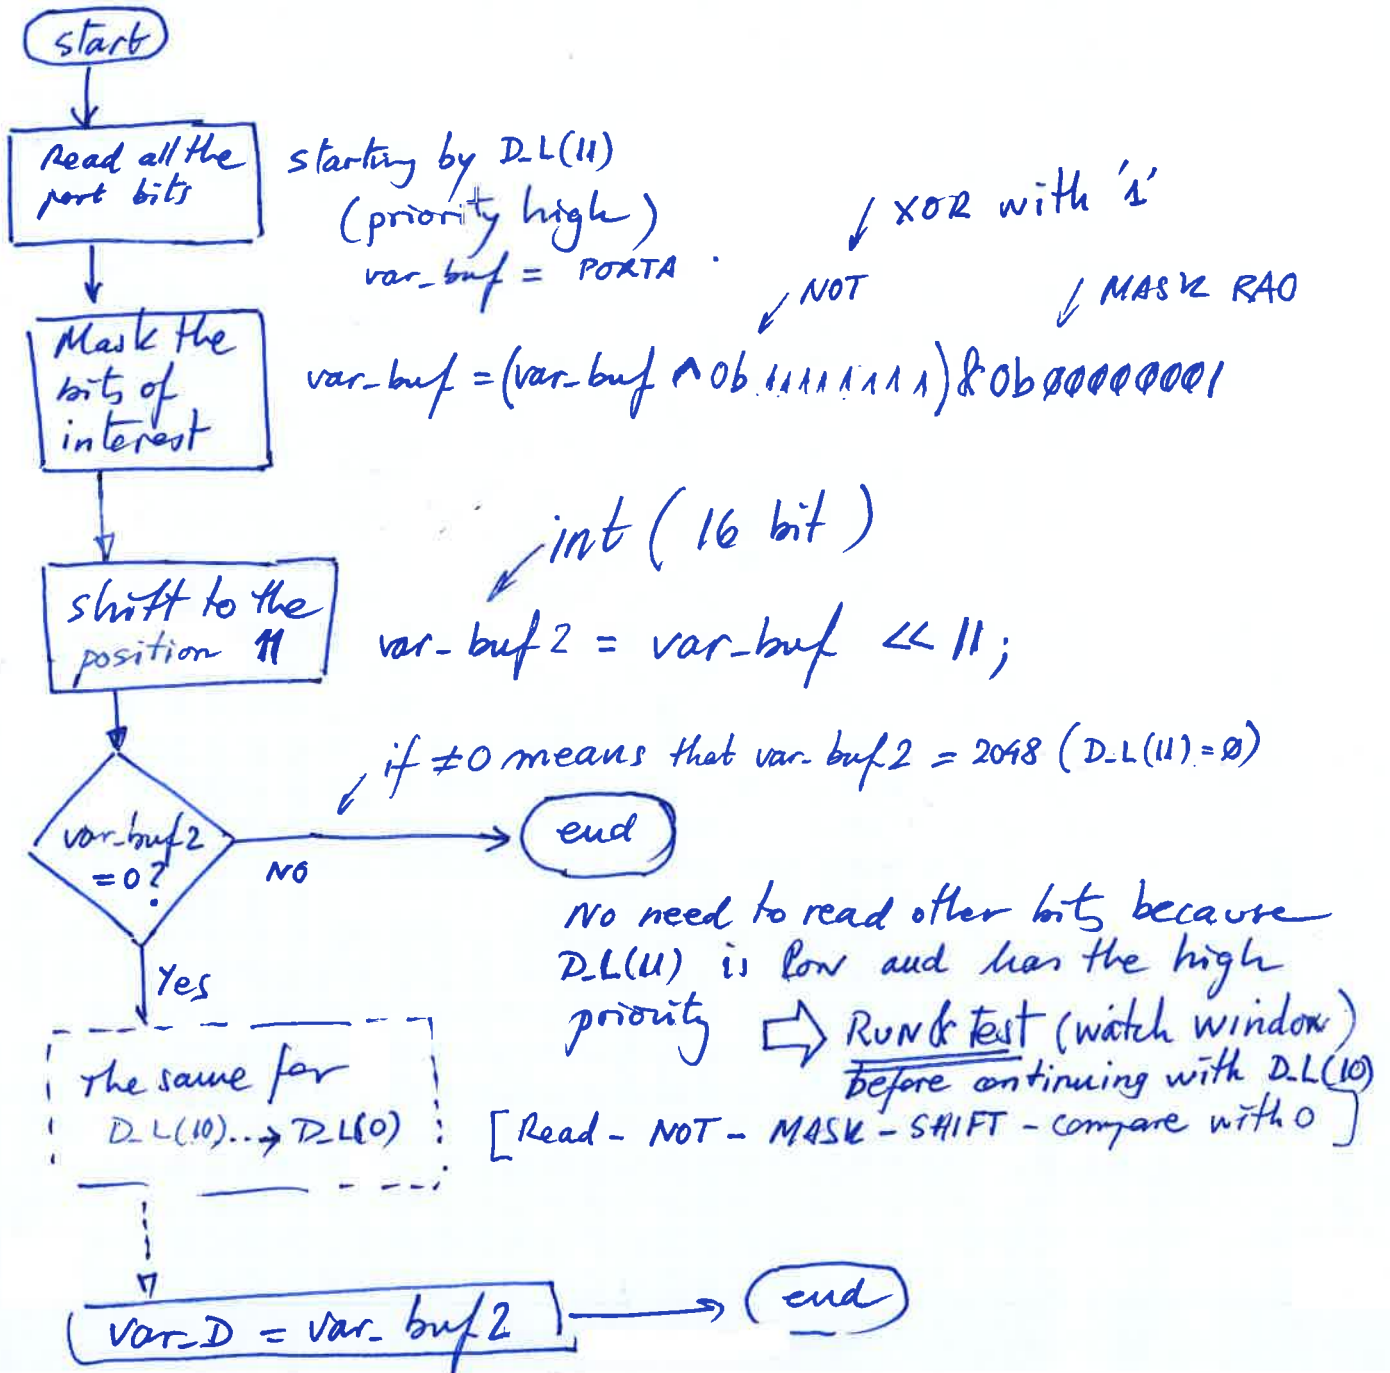 start
Read all the
port bits
starting by D_L(11)
(priority high)
var_buf = PORTA
XOR with '1'
NOT
MASK RA0
Mask the
bits of
interest
var_buf = (var_buf ^ 0b11111111) & 0b00000001
int (16 bit)
shift to the
position 11
var_buf2 = var_buf << 11;
if ≠0 means that var_buf2 = 2048 (D_L(11)=0)
var_buf2
=0?
NO
end
No need to read other bits because
D_L(11) is low and has the high
priority ⇒ RUN & Test (watch window)
before continuing with D_L(10)
Yes
The same for
D_L(10)..→ D_L(0)
[Read - NOT - MASK - SHIFT - compare with 0]
var_D = var_buf2
end